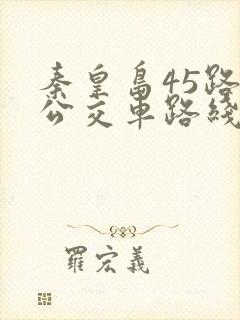 秦皇島45路
公交車路綫
羅宏義